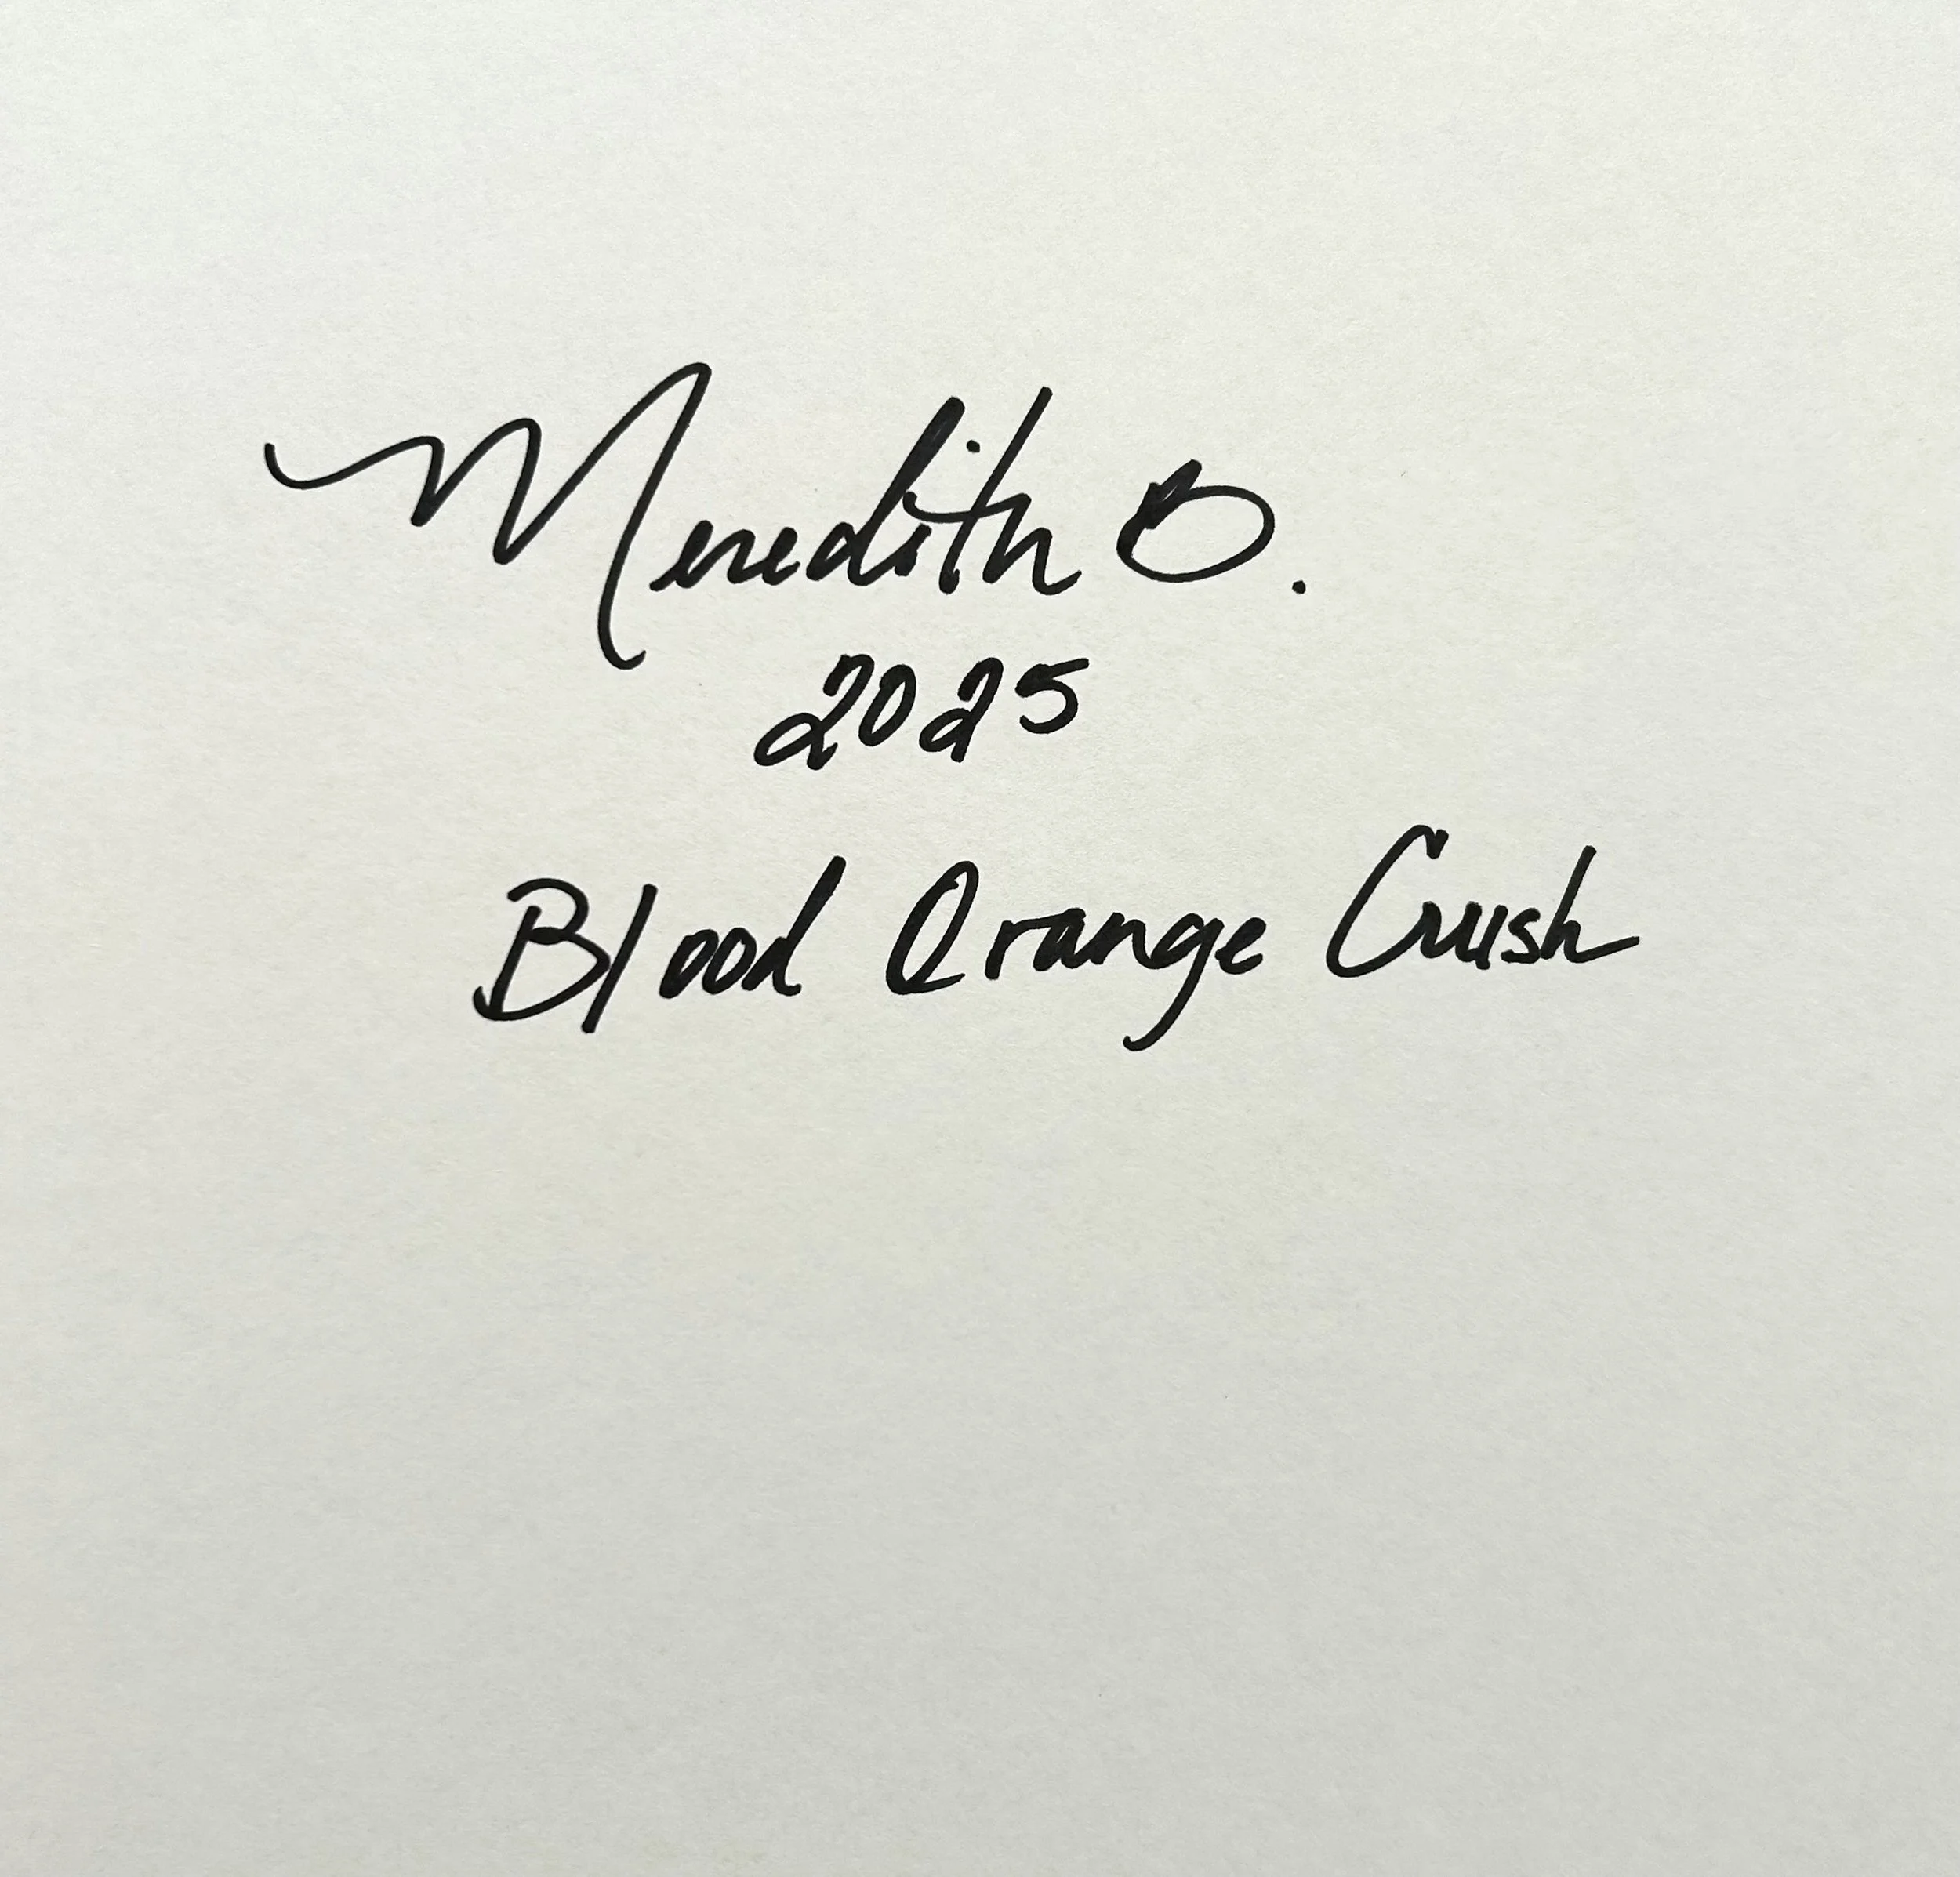 Meredith B.
2025
Blood Orange Crush